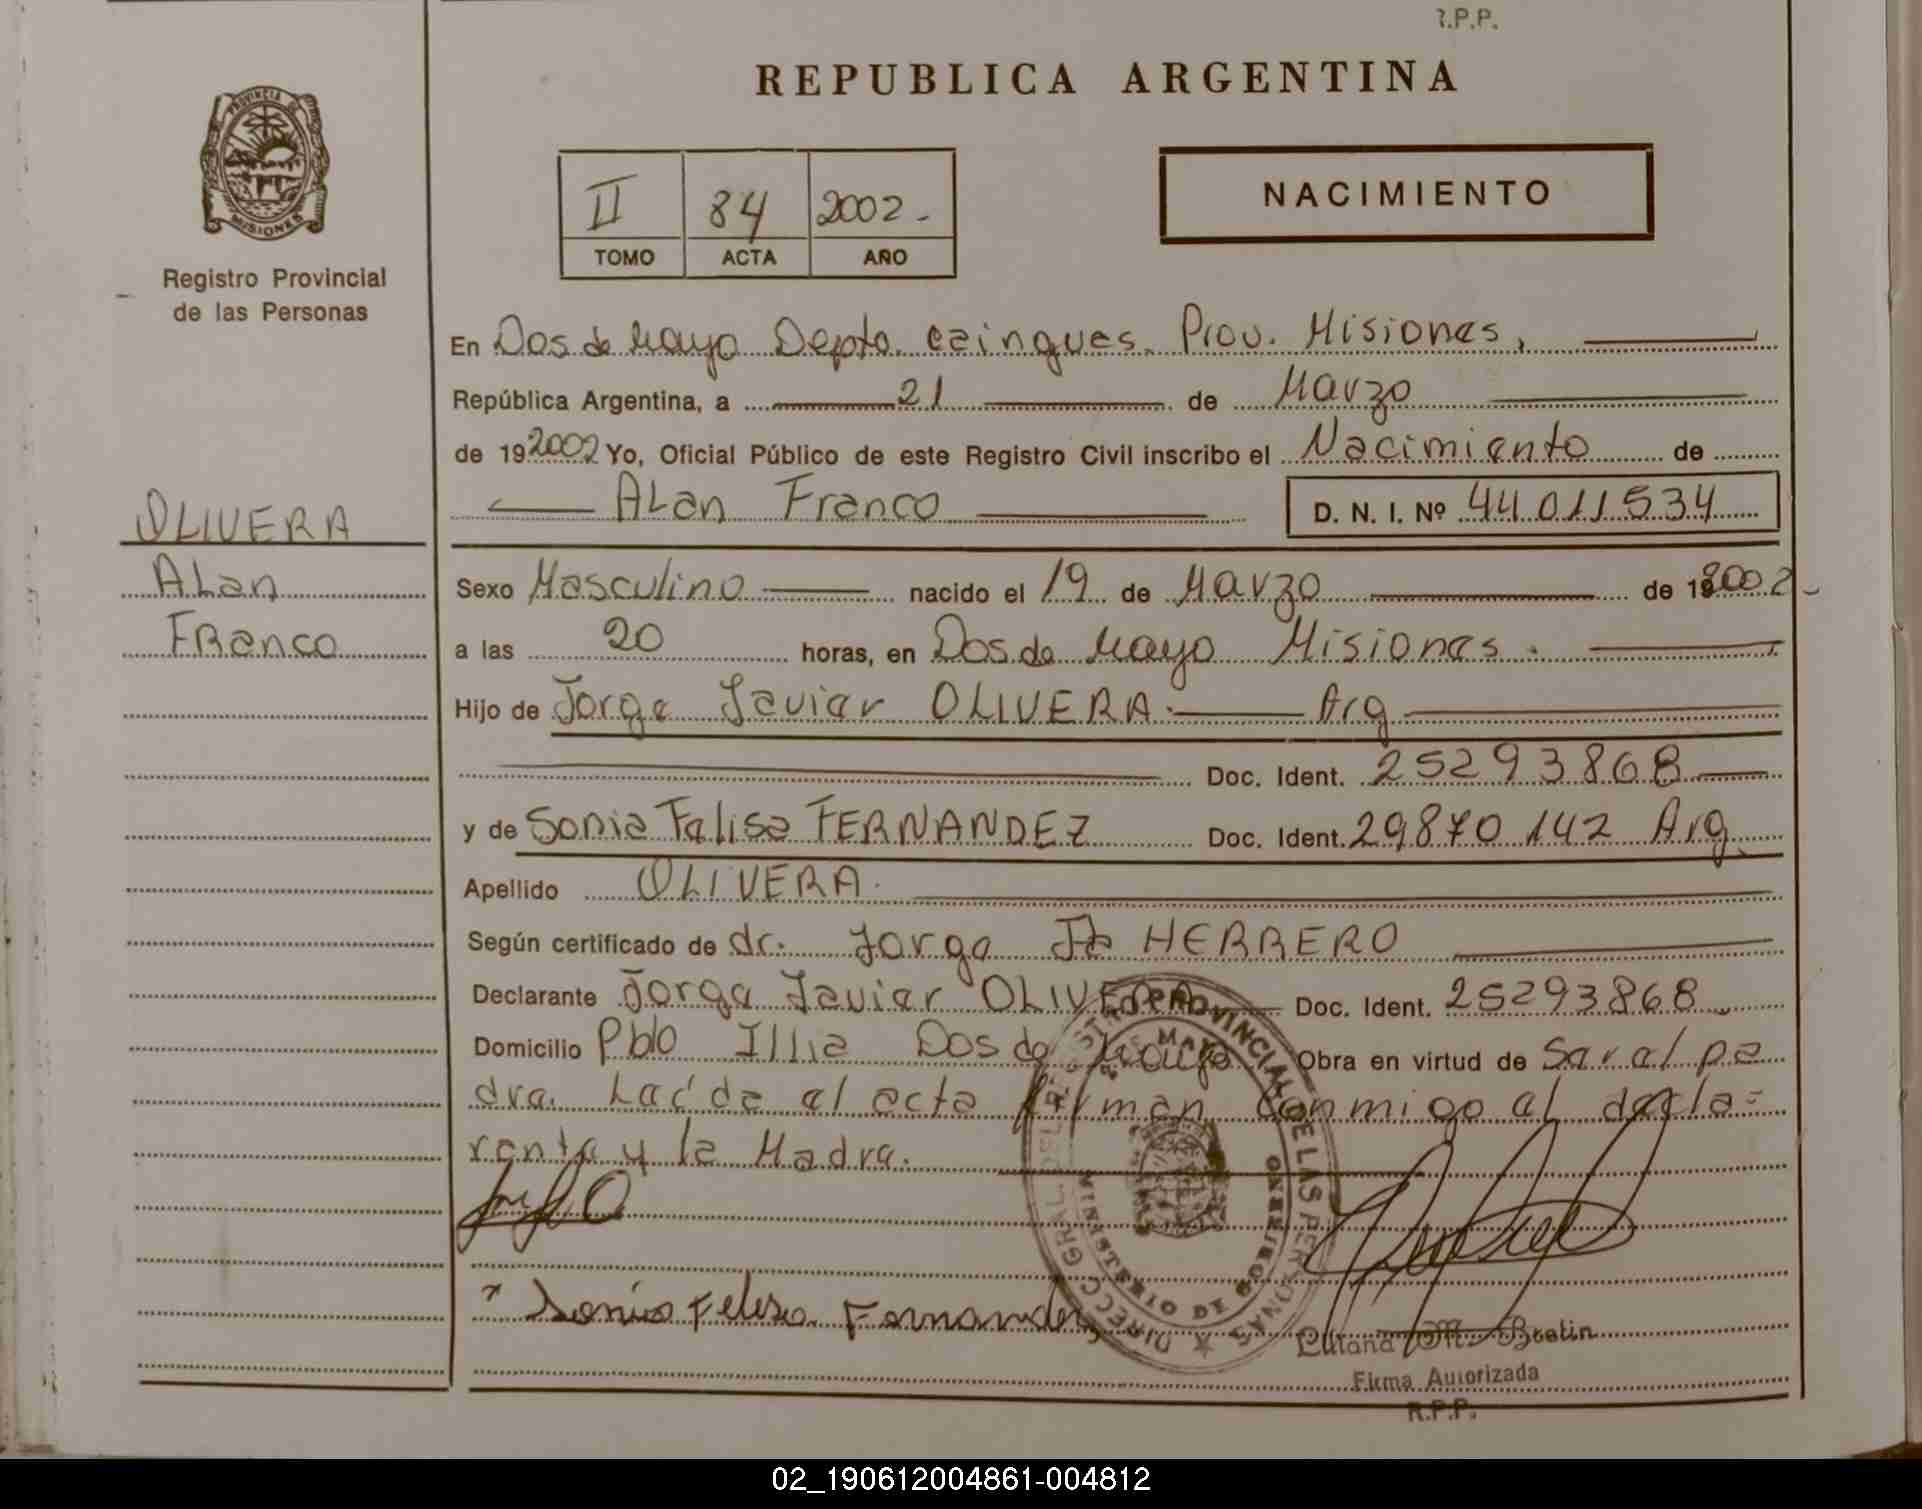 R.P.P.
REPUBLICA ARGENTINA
PROVINCIA DE
MISIONES
Registro Provincial
de las Personas
II 84 2002.-
TOMO ACTA AÑO
NACIMIENTO
En Dos de Mayo Depto. Caingues. Prov. Misiones,
República Argentina, a 21 de Marzo
de 19 2002 Yo, Oficial Público de este Registro Civil inscribo el Nacimiento de
Alan Franco D. N. I. Nº 44011534
OLIVERA
Alan
Franco
Sexo Masculino nacido el 19 de Marzo de 19 2002.-
a las 20 horas, en Dos de Mayo Misiones.
Hijo de Jorge Javier OLIVERA. Arg
Doc. Ident. 25293868
y de Sonia Felisa FERNANDEZ Doc. Ident. 29870142 Arg.
Apellido OLIVERA.
Según certificado de dr. Jorge HERRERO
Declarante Jorge Javier OLIVERA Doc. Ident. 25293868
Domicilio Pblo Illia Dos de Mayo Obra en virtud de Ser el pa
dre. Leída el acta firman conmigo el decla=
rante y la Madre.
Sonia Felisa Fernandez
DIRECC. GRAL. DEL REGISTRO PROVINCIAL DE LAS PERSONAS
MINISTERIO DE GOBIERNO
DOS DE MAYO
Firma Autorizada
R.P.P.
02_190612004861-004812